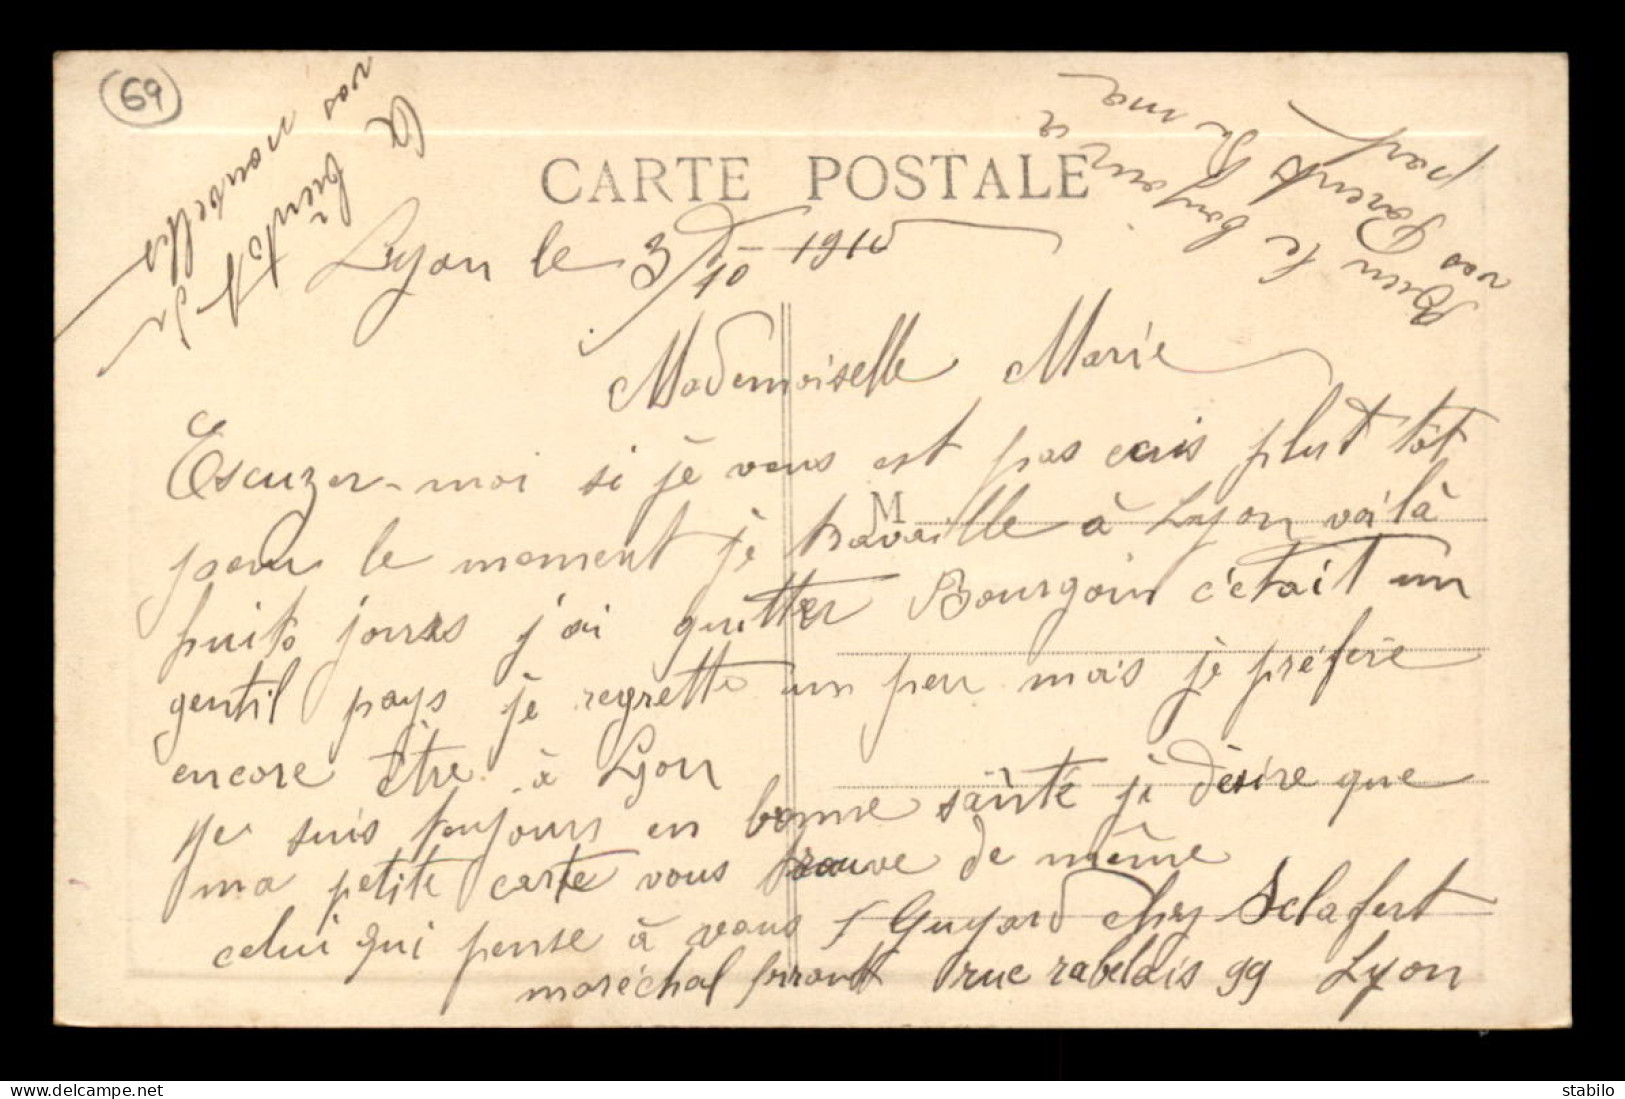 69
A bientôt de
vos nouvelles
Bien le bonjour à
vos Parents de ma
part
CARTE POSTALE
Lyon le 3/10 1910
Mademoiselle Marie
Escuzer-moi si je vous est pas ecris plut tôt
M
pour le moment je travaille à Lyon voilà
huits jours j'ai quitter Bourgoin c'était un
gentil pays je regrette un peu mais je préfère
encore être à Lyon
Je suis toujours en bonne sainté je désire que
ma petite carte vous trouve de même
celui qui pense à vous F Guyard chez Sclafert
maréchal ferrant rue rabelais 99 Lyon
stabilo